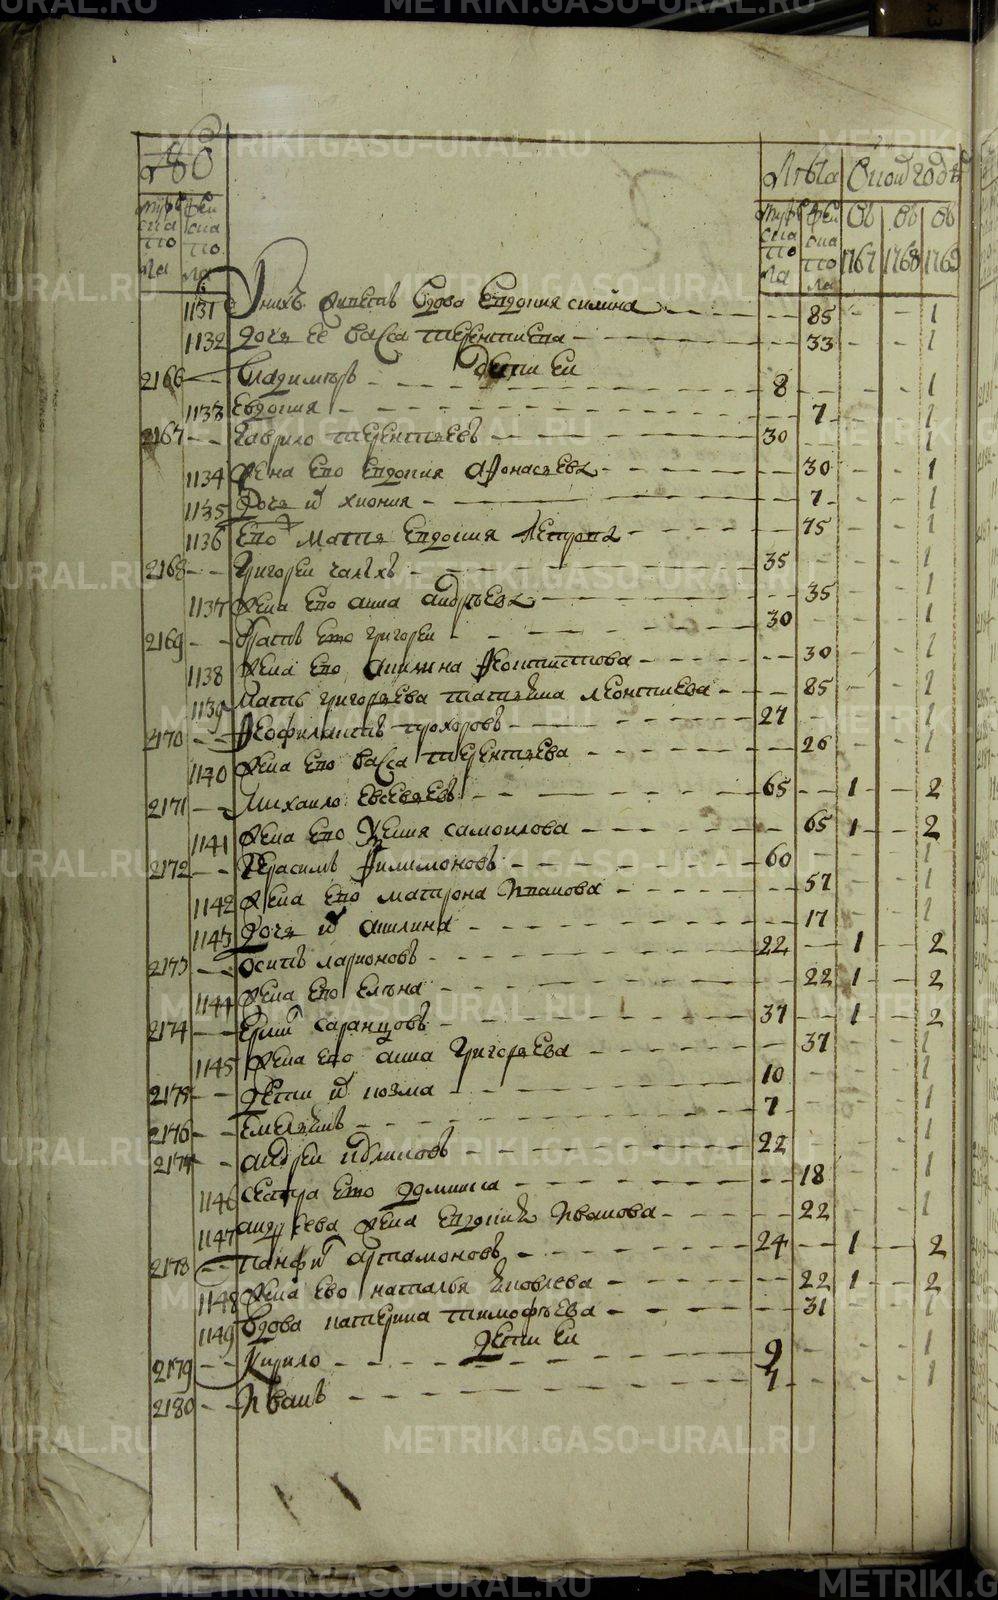 Лѣта
мужеска пола
женска пола
1767
1768
1769
1131 вдова Евдокия силина 85 1
1132 дочь ее васса терентиева 33 1
дети еи
2166 Владимиръ 8 1
1133 Евдокия 7 1
2167 гаврило терентьевъ 30 1
1134 жена ево Евдокия афонасьева 30 1
1135 дочь и хиония 7 1
1136 Ево мать Евдокия петрова 75 1
2168 Григореи 35 1
1137 жена ево анна андрѣева 35 1
2169 братъ ево григореи 30 1
1138 жена ево акилина 30 1
1139 мать григорьева татьяна леонтиева 85 1
2170 Феофилактъ прохоровъ 27 1
1140 жена ево васса терентьева 26 1
2171 Михаило Евсевьевъ 65 1 2
1141 жена ево самоилова 65 1 2
2172 Герасимъ филимоновъ 60 1
1142 жена ево матрона иванова 57 1
1143 дочь и акилина 17 1
2173 осипъ ларионовъ 22 1 2
1144 жена ево елѣна 22 1 2
2174 саранцовъ 37 1 2
1145 жена ево анна григорьева 37 1
2175 дети и козма 10 1
2176 Емельянъ 7 1
2177 андреи 22 1
1146 сестра ево домника 18 1
1147 андреева жена Евдокия иванова 22 1
2178 панфи артамоновъ 24 1 2
1148 жена ево наталья яковлева 22 1 2
1149 вдова катерина тимофѣева 31 1
дети еи
2179 Кирило 9 1
2180 иванъ 7 1
METRIKI.GASO-URAL.RU